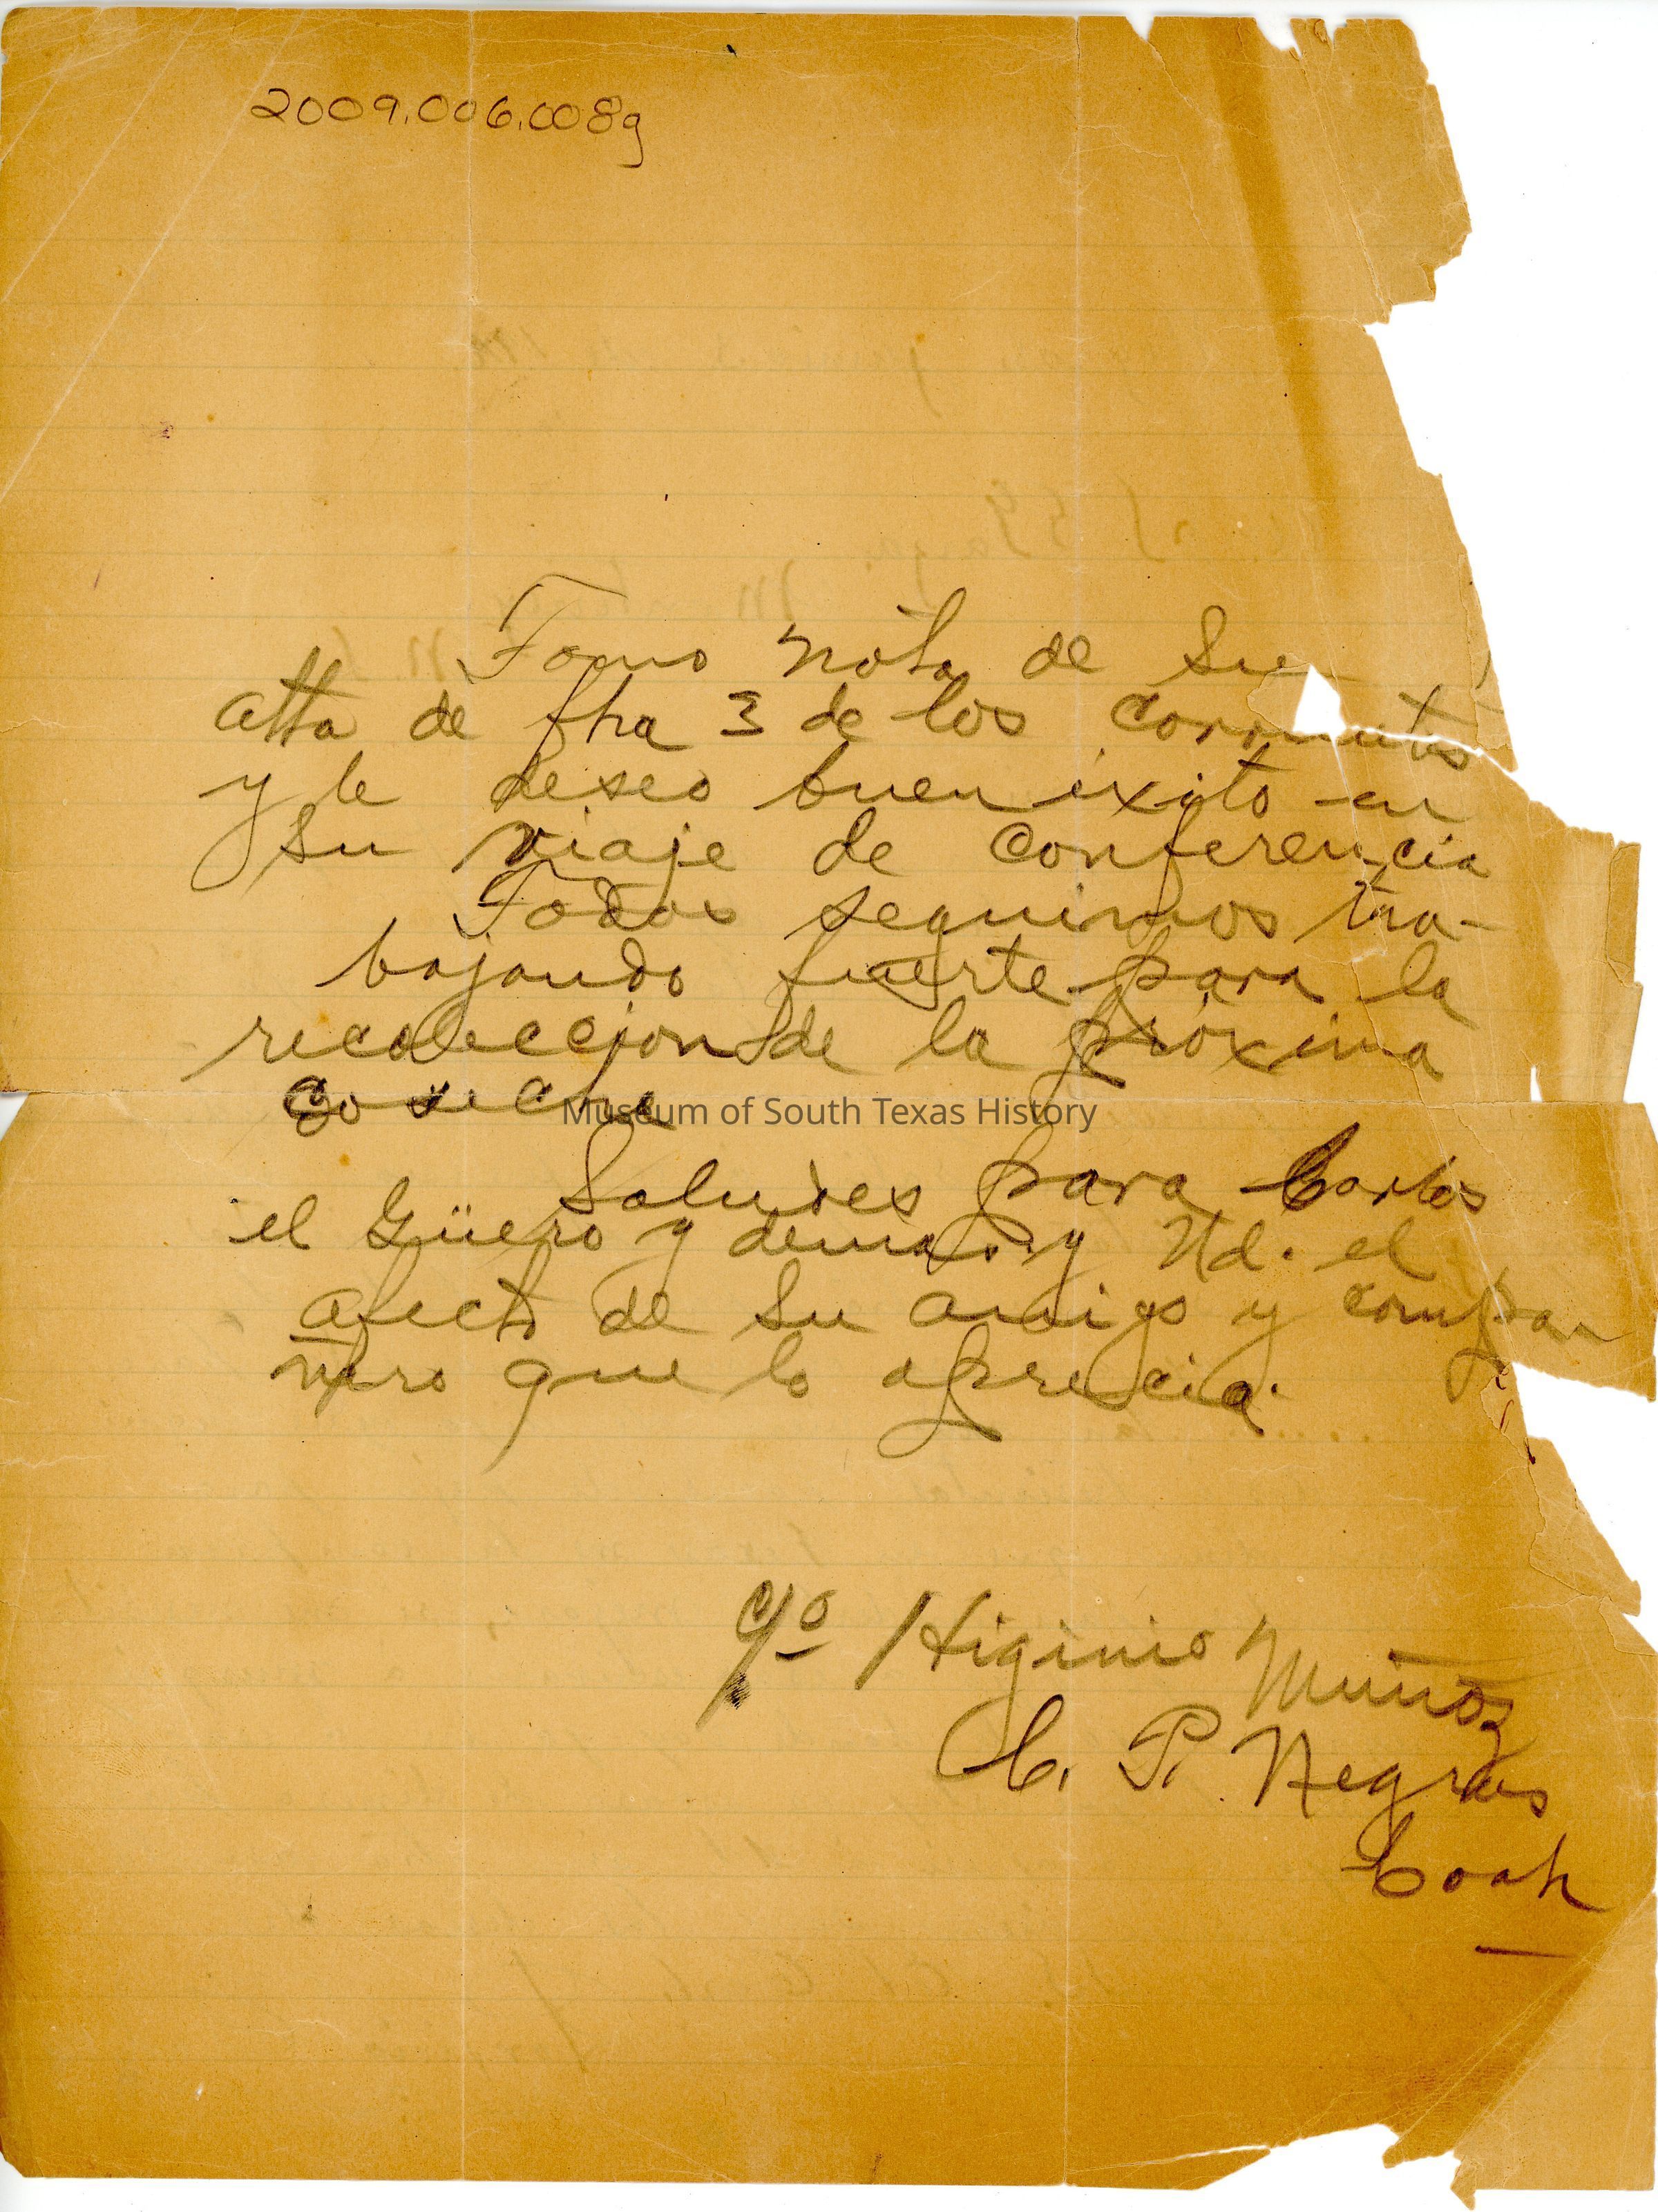 2009.006.008g
Tomo nota de Su
atta de fha 3 de los corrientes
y le deseo buen éxito en
su viaje de conferencia
Todos seguimos tra-
bajando fuerte para la
recoleccion de la próxima
cosecha
Museum of South Texas History
Saludes para Carlos
el Güero y demas y Ud. el
afecto de su amigo y compa
ñero que lo aprecia.
Higinio Muñoz
C. P. Negras
Coah